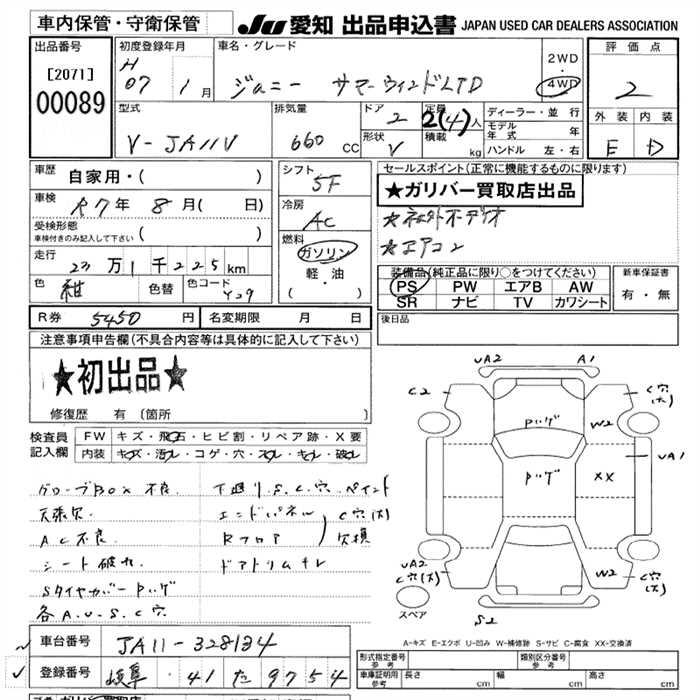 車内保管・守衛保管
JU 愛知 出品申込書 JAPAN USED CAR DEALERS ASSOCIATION
出品番号 [2071] 00089
初度登録年月 H 07 1月
車名・グレード ジムニー サマーウインドLTD
2WD・4WD
評価点 2
型式 V-JA11V
排気量 660 CC
ドア 2
形状 V
定員 2(4)人
積載 kg
ディーラー・並行
モデル年式 年
ハンドル 左・右
外装 E
内装 D
車歴 自家用・( )
車検 R7年 8月( 日)
受検形態 ( )
車検付きのみ記入して下さい
走行 23万1千225km
色 紺 色替 色コード Y29
シフト 5F
冷房 AC
燃料 ガソリン・軽油・( )
セールスポイント(正常に機能するものに限ります)
★ガリバー買取店出品
★社外オーディオ
★エアコン
装備品(純正品に限り○をつけてください)
PS PW エアB AW
SR ナビ TV カワシート
新車保証書 有・無
R券 5450円
名変期限 月 日
後日品
注意事項申告欄(不具合内容等は具体的に記入して下さい)
★初出品★
修復歴 有 〔箇所 〕
検査員記入欄
FW キズ・飛石・ヒビ割・リペア跡・X要
内装 キズ・汚れ・コゲ・穴・スレ・キレ・破れ
グローブBOX不良 下廻りS.C.穴.ペイント
天張欠 エンドパネル C穴(大)
AC不良 Rフロア 欠損
シート破れ ドアトリムキレ
Sタイヤカバーアツゲ
各A.U.S.C穴
UA2 A1
C2 C穴(大)
W2
UA1
XX
UA2
C穴(大)
W2 C穴(大)
スペア
S2
A-キズ E-エクボ U-凹み W-補修跡 S-サビ C-腐食 XX-交換済
車台番号 JA11-328134
登録番号 岐阜・41た9754
形式指定番号 参考
類別区分番号 参考
車庫証明用 参考 長さ cm 幅 cm 高さ cm